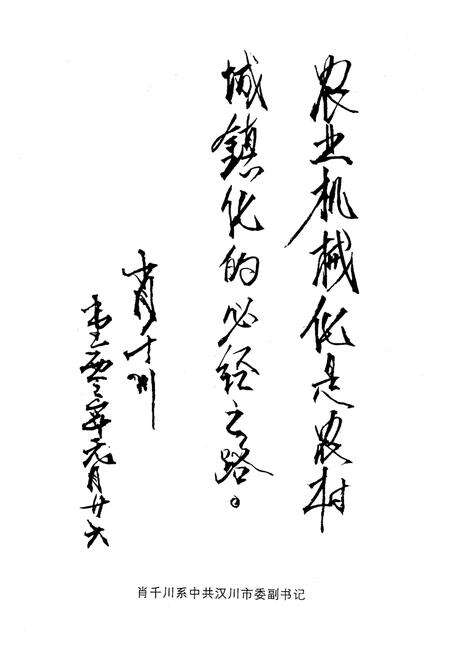 农业机械化是农村
城鎮化的必经之路。
肖千川
年元月廿六
肖千川系中共汉川市委副书记